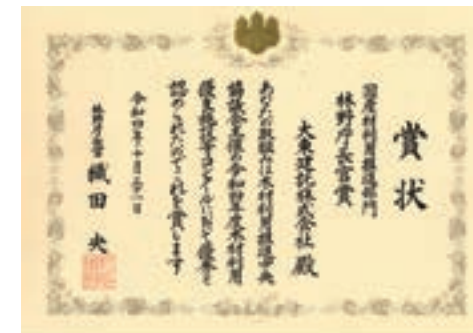 賞状
国産材利用推進部門
林野庁長官賞
大東建託株式会社 殿
あなたの取組は木材利用推進中央
協議会主催の令和四年度木材利用
優良施設等コンクールにおいて優秀と
認められたのでこれを賞します
令和四年十月
林野庁長官 織田 央